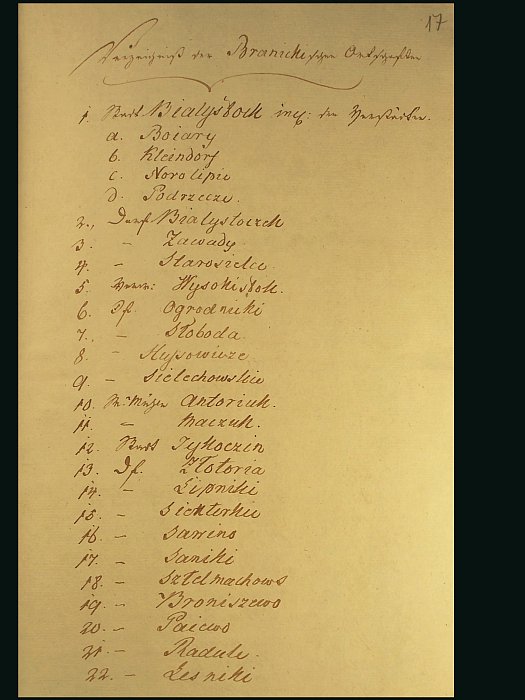 17
Verzeichniß der Branickischen Ortschaften
1. Stadt Białystock incl: der Vorstädten.
a. Boiary
b. Kleindorf
c. Nowolipie
d. Podrzecze.
2., Dorf Białystoczek
3. – Zawady
4. – Starosielce
5. Vorw: Wysokistok.
6. Df. Ogrodniki
7. – Słoboda
8. –
9. – Sielechowskie
10. Antoniuk.
11. – Maczuk.
12. Stadt Tykoczin
13. Df. Złotoria
14. – Lipniki
15. – Siekierki
16. – Sawino
17. – Saniki
18. – Sztelmachowo
19. – Broniszewo
20. – Paiewo
21. – Radule.
22. – Leśniki